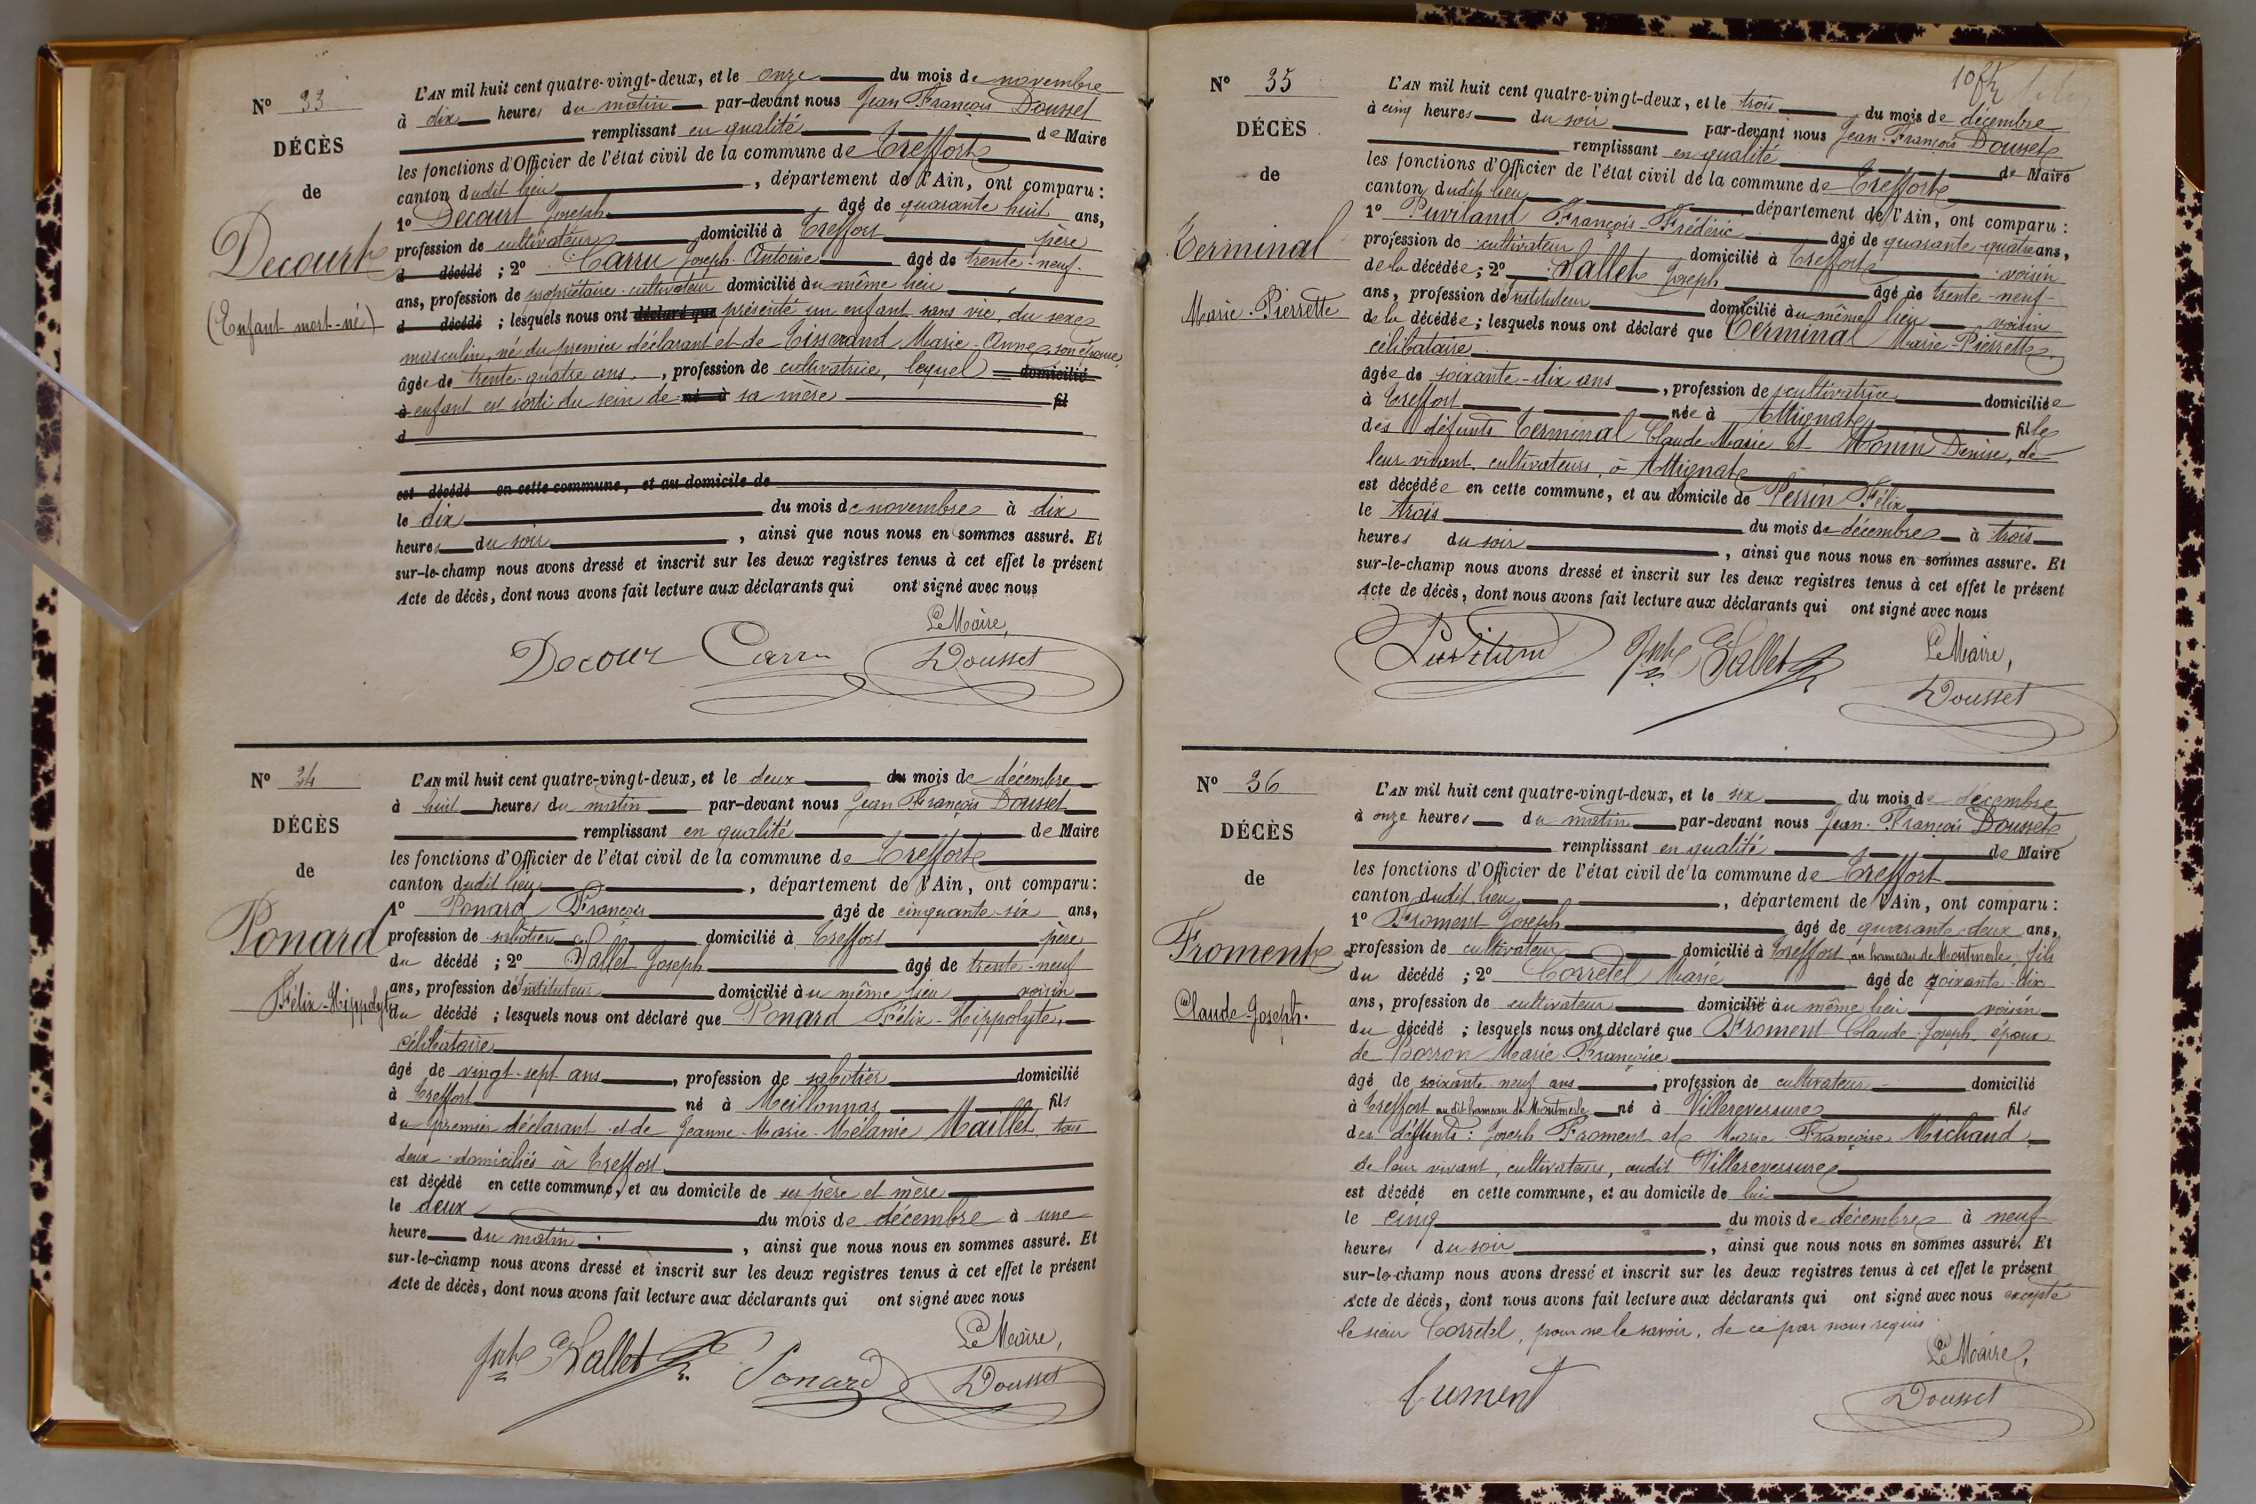 N° 33
DÉCÈS
de
Decourt
(Enfant mort-né)
L'AN mil huit cent quatre-vingt-deux, et le onze du mois de novembre
à dix heures du matin par-devant nous Jean François Dousset
remplissant en qualité de Maire
les fonctions d'Officier de l'état civil de la commune de Treffort
canton dudit lieu, département de l'Ain, ont comparu :
1° Decourt Joseph âgé de quarante huit ans,
profession de cultivateur domicilié à Treffort père
d décédé ; 2° Carru Joseph-Antoine âgé de trente-neuf
ans, profession de propriétaire-cultivateur domicilié au même lieu
d décédé ; lesquels nous ont déclaré que présenté un enfant sans vie, du sexe
masculin, né du premier déclarant et de Tisserand Marie-Anne, son épouse,
âgée de trente-quatre ans, profession de cultivatrice, lequel domicilié
à enfant est sorti du sein de né à sa mère fil
d
est décédé en cette commune, et au domicile de
le dix du mois de novembre à dix
heures du soir, ainsi que nous nous en sommes assuré. Et
sur-le-champ nous avons dressé et inscrit sur les deux registres tenus à cet effet le présent
Acte de décès, dont nous avons fait lecture aux déclarants qui ont signé avec nous
Le Maire,
Decour Carru Dousset
N° 34
DÉCÈS
de
Ponard
Félix-Hippolyte
L'AN mil huit cent quatre-vingt-deux, et le deux du mois de décembre
à huit heures du matin par-devant nous Jean François Dousset
remplissant en qualité de Maire
les fonctions d'Officier de l'état civil de la commune de Treffort
canton dudit lieu, département de l'Ain, ont comparu :
1° Ponard François âgé de cinquante-six ans,
profession de sabotier domicilié à Treffort père
du décédé ; 2° Vallet Joseph âgé de trente-neuf
ans, profession d'instituteur domicilié au même lieu voisin
du décédé ; lesquels nous ont déclaré que Ponard Félix-Hippolyte,
célibataire
âgé de vingt-sept ans, profession de sabotier domicilié
à Treffort né à Meillonnas fils
du premier déclarant et de Jeanne-Marie-Mélanie Maillet tous
deux domiciliés à Treffort
est décédé en cette commune, et au domicile de ses père et mère
le deux du mois de décembre à une
heure du matin, ainsi que nous nous en sommes assuré. Et
sur-le-champ nous avons dressé et inscrit sur les deux registres tenus à cet effet le présent
Acte de décès, dont nous avons fait lecture aux déclarants qui ont signé avec nous
Le Maire,
Jph Vallet Ponard Dousset
N° 35
DÉCÈS
de
Terminal
Marie-Pierrette
L'AN mil huit cent quatre-vingt-deux, et le trois du mois de décembre
à cinq heures du soir par-devant nous Jean-François Dousset
remplissant en qualité de Maire
les fonctions d'Officier de l'état civil de la commune de Treffort
canton dudit lieu département de l'Ain, ont comparu :
1° Puviland François-Frédéric âgé de quarante-quatre ans,
profession de cultivateur domicilié à Treffort voisin
de la décédée ; 2° Vallet Joseph âgé de trente-neuf
ans, profession d'instituteur domicilié au même lieu voisin
de la décédée ; lesquels nous ont déclaré que Terminal Marie-Pierrette,
célibataire
âgée de soixante-dix ans, profession de cultivatrice domiciliée
à Treffort née à Attignat fille
des défunts Terminal Claude Marie et Monin Denise, de
leur vivant cultivateurs à Attignat
est décédée en cette commune, et au domicile de Perrin Félix
le trois du mois de décembre à trois
heures du soir, ainsi que nous nous en sommes assuré. Et
sur-le-champ nous avons dressé et inscrit sur les deux registres tenus à cet effet le présent
Acte de décès, dont nous avons fait lecture aux déclarants qui ont signé avec nous
Le Maire,
Puviland Jph Vallet Dousset
N° 36
DÉCÈS
de
Froment
Claude-Joseph.
L'AN mil huit cent quatre-vingt-deux, et le six du mois de décembre
à onze heures du matin par-devant nous Jean-François Dousset
remplissant en qualité de Maire
les fonctions d'Officier de l'état civil de la commune de Treffort
canton dudit lieu, département de l'Ain, ont comparu :
1° Froment Joseph âgé de quarante-deux ans,
profession de cultivateur domicilié à Treffort au hameau de Montmerle, fils
du décédé ; 2° Corretel Marie âgé de soixante-dix
ans, profession de cultivateur domicilié au même lieu voisin
du décédé ; lesquels nous ont déclaré que Froment Claude-Joseph, époux
de Borron Marie-Françoise
âgé de soixante-neuf ans, profession de cultivateur domicilié
à Treffort au dit hameau de Montmerle né à Villereversure fils
des défunts : Joseph Froment et Marie Françoise Michaud
de leur vivant, cultivateurs, audit Villereversure
est décédé en cette commune, et au domicile de lui
le cinq du mois de décembre à neuf
heures du soir, ainsi que nous nous en sommes assuré. Et
sur-le-champ nous avons dressé et inscrit sur les deux registres tenus à cet effet le présent
Acte de décès, dont nous avons fait lecture aux déclarants qui ont signé avec nous excepté
le sieur Corretel, pour ne le savoir, de ce par nous requis.
Le Maire,
frument Dousset